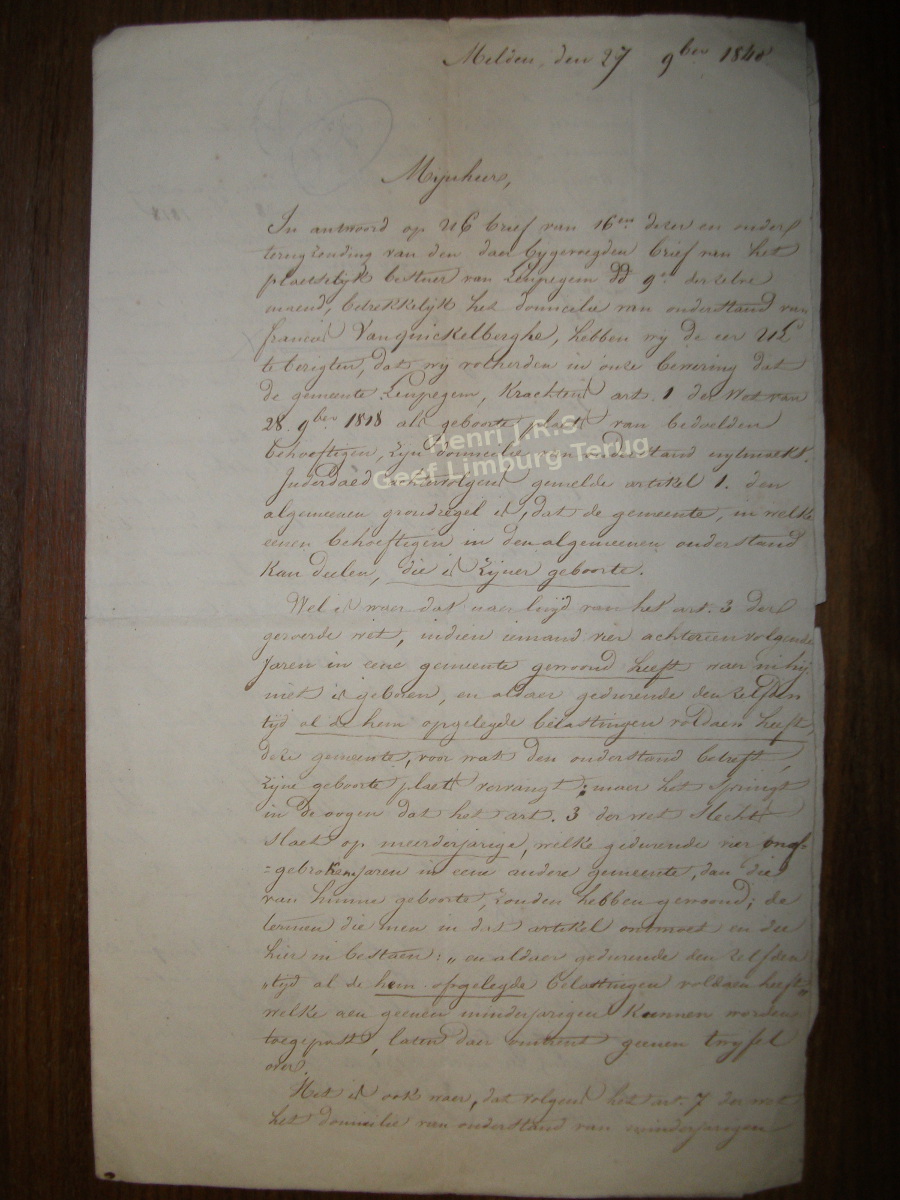 Melden, den 27 9ber 1840
Mynheer,
In antwoord op UE brief van 16en dezer en onder
terugzending van den daer bygevoegden brief van het
plaetselyk bestuer van Leupegem dd 9n derzelve
maend, betrekkelyk het domicilie van onderstand van
francies Vanquickelberghe, hebben wy de eer UE
te berigten, dat wy volherden in onze bewering dat
de gemeente Leupegem, Krachtens art. 1 der Wet van
28. 9ber 1818 als geboorte plaets van bedoelden
behoeftigen, zyn domicilie van onderstand uytmaekt.
Inderdaed gemelde artikel 1. den
algemeenen grondregel is, dat de gemeente, in welke
eenen behoeftigen in den algemeenen onderstand
Kan deelen, die is zyner geboorte.
Wel is waer dat naer luyd van het art. 3 der
geroerde wet, indien iemand vier achtereenvolgende
Jaren in eene gemeente gewoond heeft waer in hy
niet is geboren, en aldaer gedurende den zelfden
tyd al de hem opgelegde belastingen voldaen heeft,
deze gemeente, voor wat den onderstand betreft,
zyne geboorte plaets vervangt; maer het springt
in de oogen dat het art. 3 der wet slechts
slaet op meerderjarige, welke gedurende vier onaf-
=gebroken jaren in eene andere gemeente, dan die
van hunne geboorte, zouden hebben gewoond; de
termen die men in dat artikel ontmoet en die
hier in bestaen: „en aldaer gedurende den zelfden
„tyd al de hem opgelegde belastingen voldaen heeft„
welke aen geenen minderjarigen Kunnen worden
toegepast, laten daer omtrent geenen twyfel
over.
Het is ook waer, dat volgens het art. 7 der wet
het domicilie van onderstand van minderjarigen
Henri J.R.S
Geef Limburg Terug